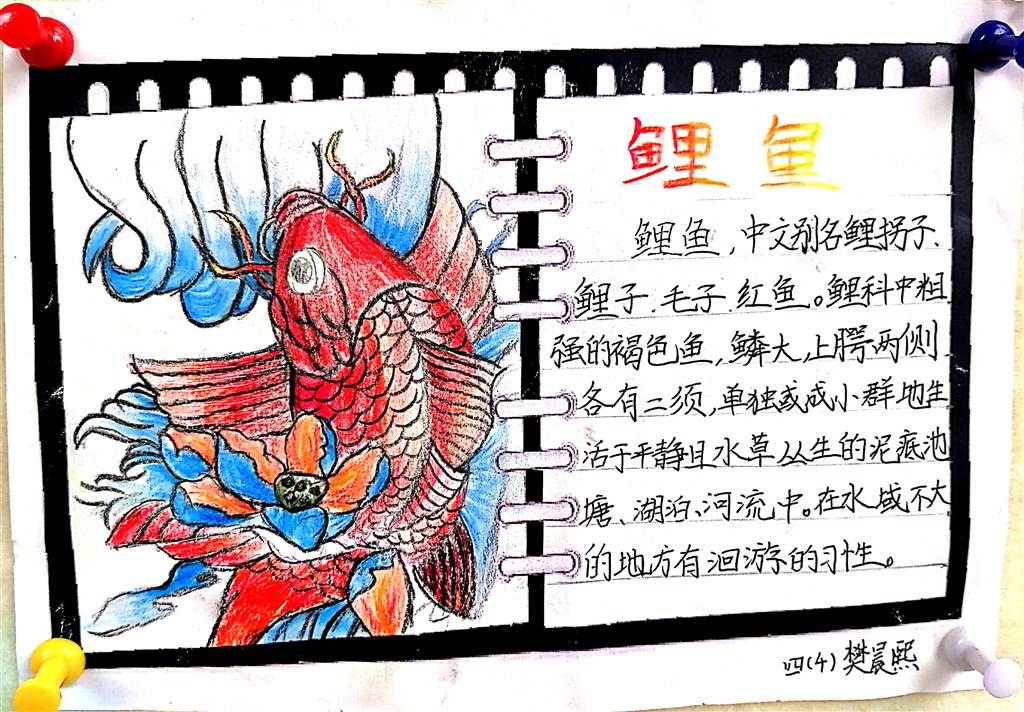 鲤鱼
鲤鱼，中文别名鲤拐子、
鲤子、毛子、红鱼。鲤科中粗
强的褐色鱼，鳞大，上腭两侧
各有二须，单独或成小群地生
活于平静且水草丛生的泥底池
塘、湖泊、河流中。在水域不大
的地方有洄游的习性。
四(4)樊晨熙